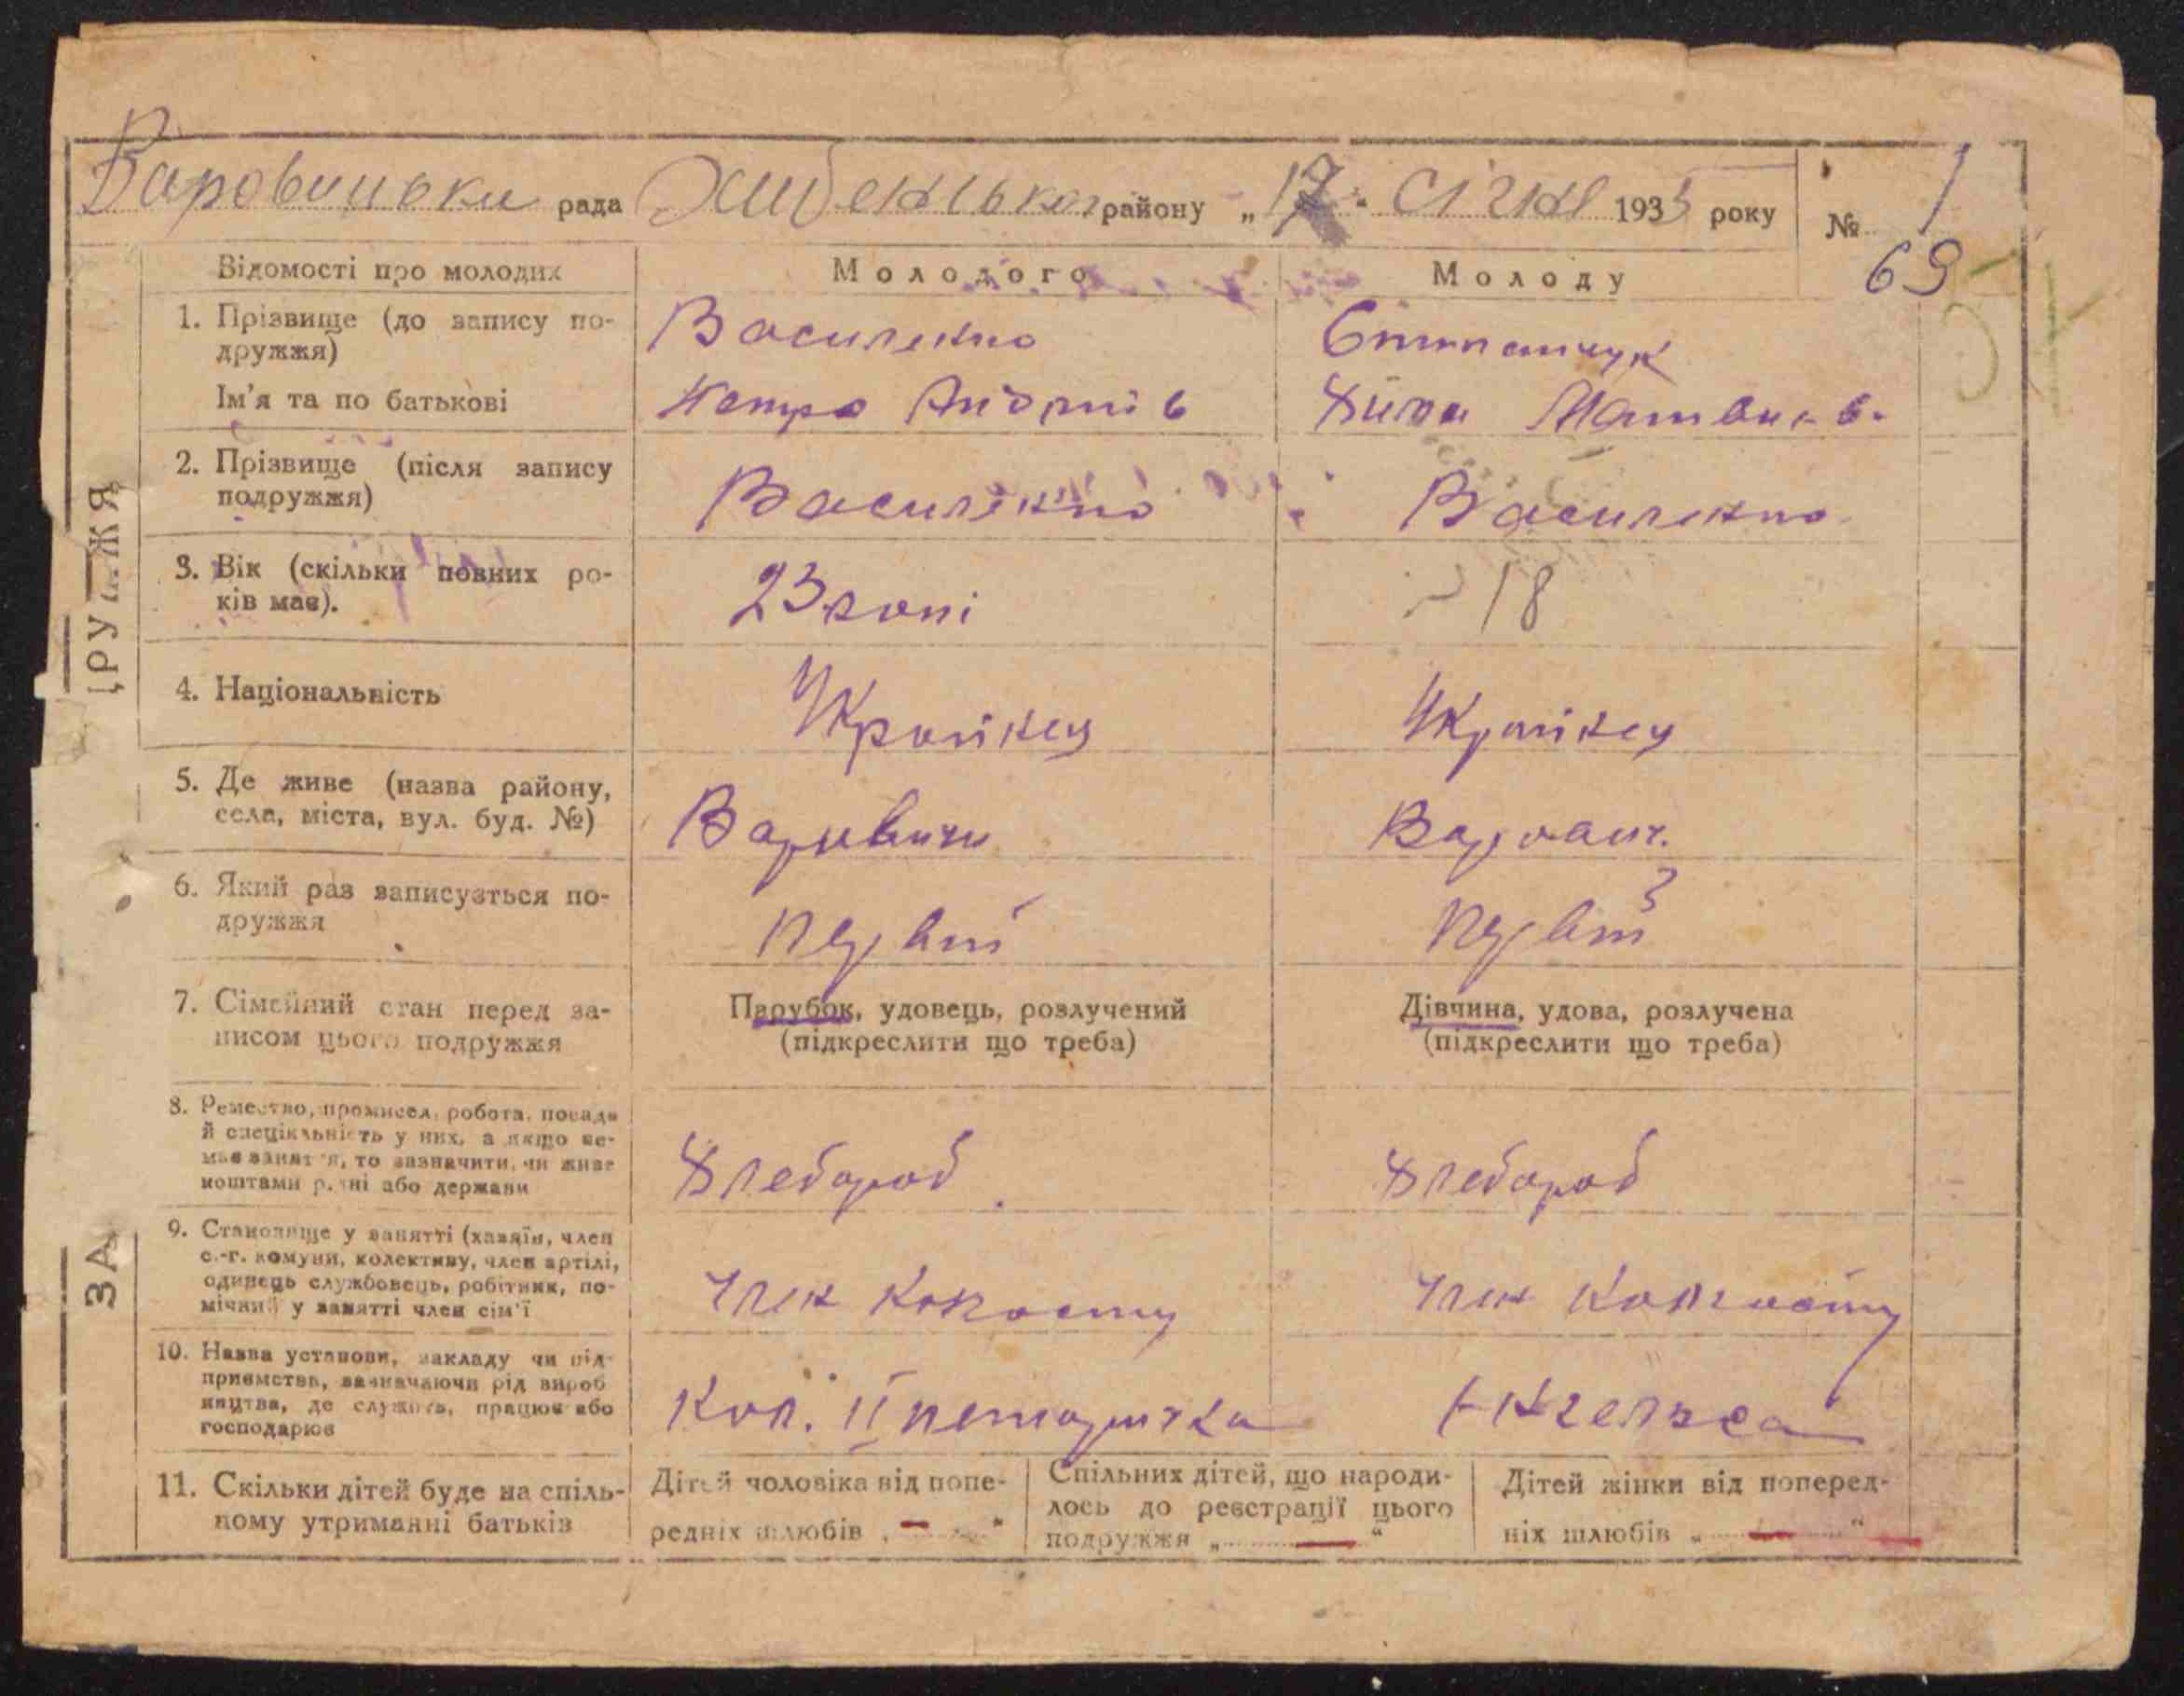 Варовицька рада Хабенського району „17“ січня 1933 року № 1
69
Відомості про молодих Молодого Молоду
1. Прізвище (до запису по-
дружжя) Василенко Степанчук
Ім'я та по батькові Петро Андріїв Матвіїв.
2. Прізвище (після запису
подружжя) Василенко Василенко
3. Вік (скільки повних ро-
ків має). 23 роки 18
4. Національність Українец Українец
5. Де живе (назва району,
села, міста, вул. буд. №) Варовичи Варович.
6. Який раз записується по-
дружжя первий первий
7. Сімейний стан перед за-
писом цього подружжя
Парубок, удовець, розлучений
(підкреслити що треба)
Дівчина, удова, розлучена
(підкреслити що треба)
8. Ремество, промисел, робота, посада
й спеціяльність у них, а якщо не-
має заняття, то зазначити, чи живе
коштами рідні або держави
Хлебороб Хлебороб
9. Становище у занятті (хазяїн, член
с.-г. комуни, колективу, член артілі,
одинець службовець, робітник, по-
мічний у занятті член сім'ї
член колгоспу член колгоспу
10. Назва установи, закладу чи під-
приємства, зазначаючи рід вироб
ництва, де служить, працює або
господарює
Кол. ІІ петиричка Енгельса
11. Скільки дітей буде на спіль-
ному утриманні батьків
Дітей чоловіка від попе-
редніх шлюбів „ — “
Спільних дітей, що народи-
лось до реєстрації цього
подружжя „ — “
Дітей жінки від поперед-
ніх шлюбів „ — “
ЗА
ДРУЖЖЯ